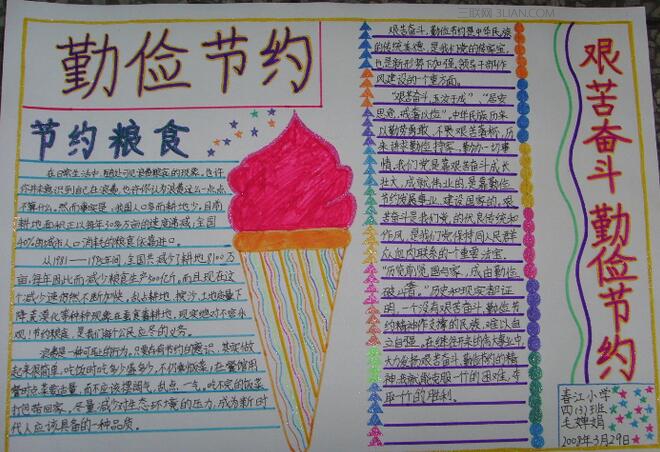 三联网 3LIAN.COM
勤俭节约
节约粮食
在日常生活中，随处可见浪费粮食的现象。也许
你并未意识到自己在浪费，也许你认为浪费这么一点点
不算什么。然而事实是，我国人口多而耕地少。目前
耕地面积正以每年30多万亩的速度递减；全国
40%的城市人口消耗的粮食依靠进口。
从1981——1995年间，全国共减少了耕地8100万
亩，每年因此而减少粮食生产500亿斤。而且现在这
观！节约粮食，是我们每个公民应尽的义务。
浪费是一种可耻的行为。只要存有节约的意识，其实做
起来很简单：吃饭时吃多少盛多少，不扔剩饭菜；在餐馆用
餐时点菜要适量，而不应该摆阔气，乱点一气。吃不完的饭菜
打包带回家。尽量减少对生态环境的压力，成为新时
代人应该具备的一种品质。
艰苦奋斗，勤俭节约是中华民族
的传统美德，是我们党的传家宝，
也是新形势下加强领导干部作
风建设的一个重方面。
“艰苦奋斗，玉汝于成”，“居安
思危，戒奢以俭”。中华民族历来
以勤劳勇敢、不畏艰苦著称，历
来讲求勤俭持家、勤勉一切事
情。我们党是靠艰苦奋斗成长
壮大，成就伟业的，是靠勤俭
节约发展事业、建设国家的，艰
苦奋斗是我们党的优良传统和
作风，是我们党保持同人民群
众血肉联系的一个重要法宝。
“历览前贤国与家，成由勤俭
破由奢。”历史和现实都证
明，一个没有艰苦奋斗、勤俭节
约精神作支撑的民族，难以自
立自强。在继往开来的伟大事业中，
大力发扬艰苦奋斗、勤俭节约的精
神，我就能克服一个的困难，夺
取一个的胜利。
艰苦奋斗 勤俭节约
春江小学
四(3)班
毛婵娟
2008年3月29日